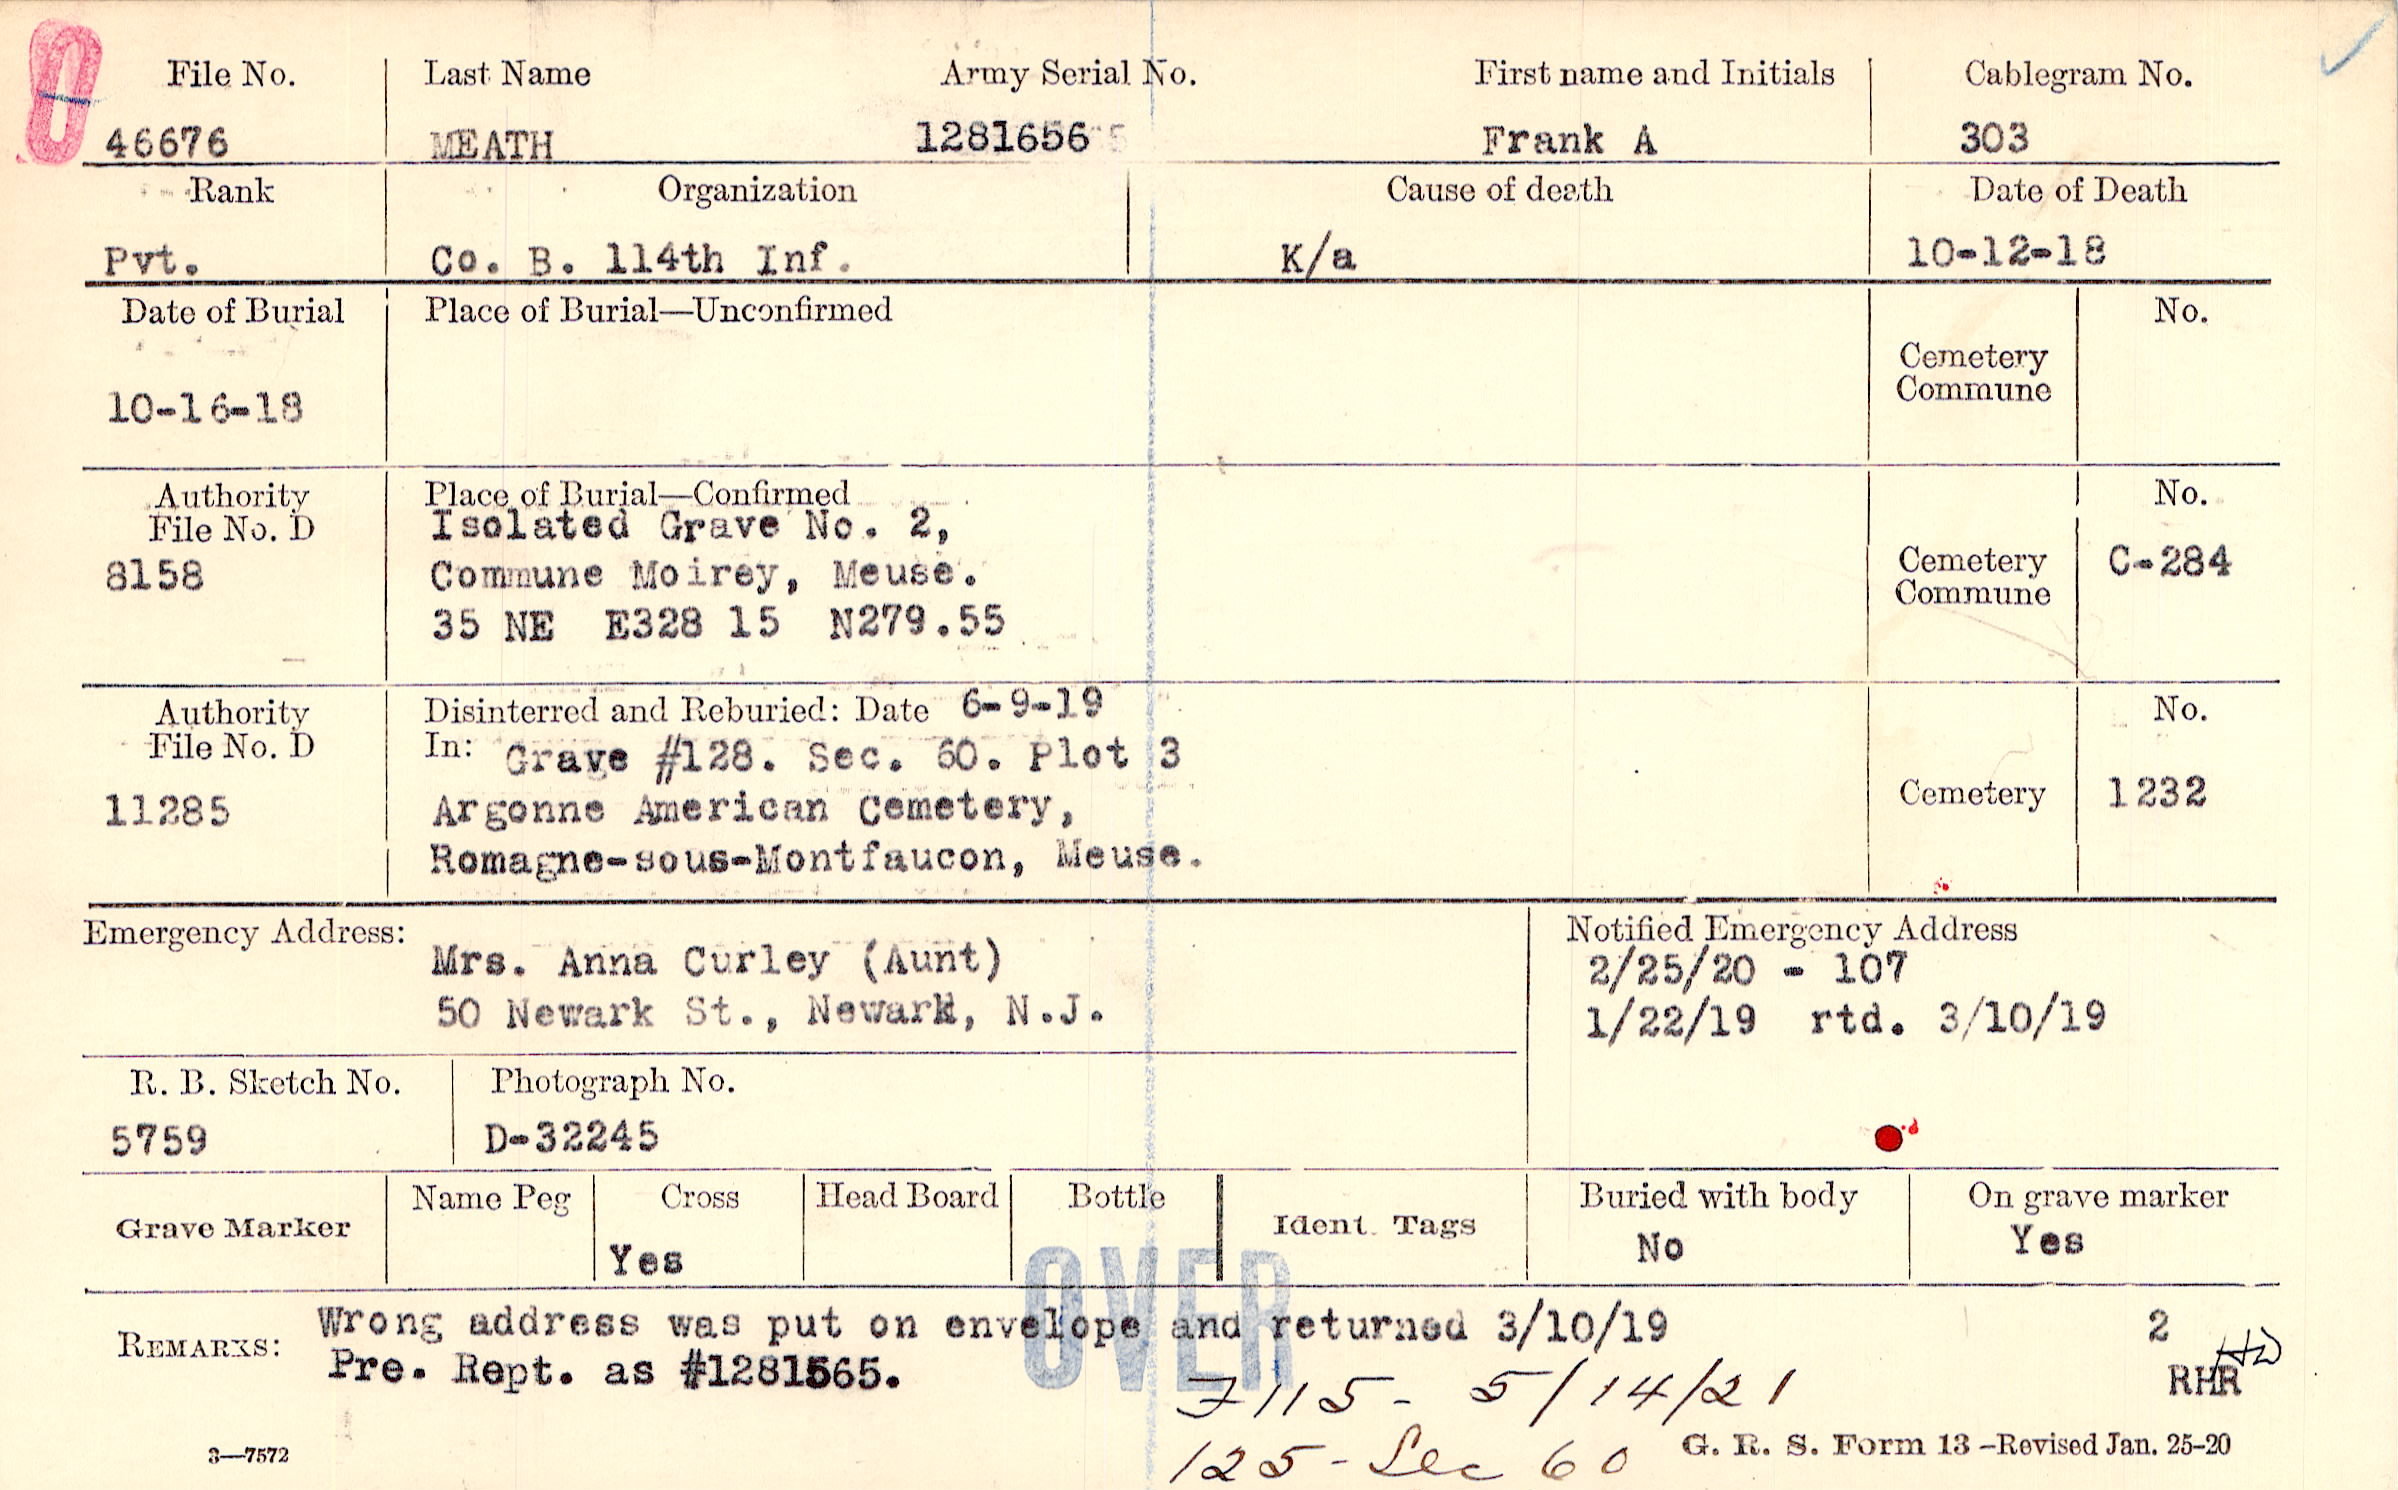 File No. Last Name Army Serial No. First name and Initials Cablegram No.
46676 MEATH 1281656 Frank A 303
Rank Organization Cause of death Date of Death
Pvt. Co. B. 114th Inf. K/a 10-12-18
Date of Burial Place of Burial—Unconfirmed No.
Cemetery
Commune
10-16-18
Authority Place of Burial—Confirmed No.
File No. D Isolated Grave No. 2,
8158 Commune Moirey, Meuse. Cemetery C-284
Commune
35 NE E328 15 N279.55
Authority Disinterred and Reburied: Date 6-9-19 No.
File No. D In: Grave #128. Sec. 60. Plot 3
11285 Argonne American Cemetery, Cemetery 1232
Romagne-sous-Montfaucon, Meuse.
Emergency Address: Notified Emergency Address
Mrs. Anna Curley (Aunt) 2/25/20 - 107
50 Newark St., Newark, N.J. 1/22/19 rtd. 3/10/19
R. B. Sketch No. Photograph No.
5759 D-32245
Grave Marker Name Peg Cross Head Board Bottle Ident. Tags Buried with body On grave marker
Yes No Yes
OVER
REMARKS: Wrong address was put on envelope and returned 3/10/19 2
Pre. Rept. as #1281565. RHR
7115 - 5/14/21
125 - Sec 60
3—7572 G. R. S. Form 13 —Revised Jan. 25-20